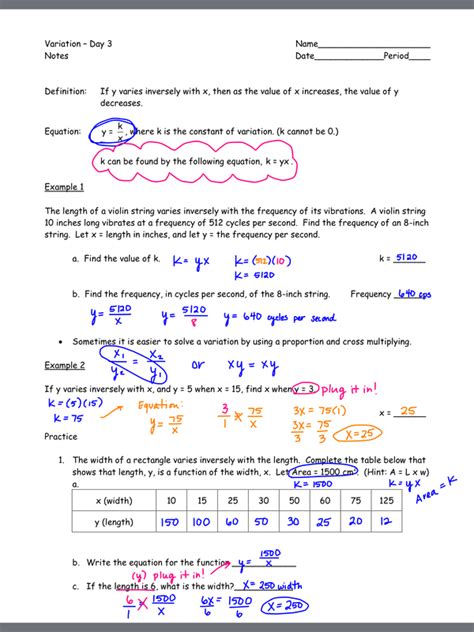 Variation – Day 3 Name____________________
Notes Date______________Period____
Definition: If y varies inversely with x, then as the value of x increases, the value of y
decreases.
Equation: y = k/x, where k is the constant of variation. (k cannot be 0.)
k can be found by the following equation, k = yx.
Example 1
The length of a violin string varies inversely with the frequency of its vibrations. A violin string
10 inches long vibrates at a frequency of 512 cycles per second. Find the frequency of an 8-inch
string. Let x = length in inches, and let y = the frequency per second.
a. Find the value of k. K = yx K = (512)(10) k = 5120
K = 5120
b. Find the frequency, in cycles per second, of the 8-inch string. Frequency 640 cps
y = 5120/x y = 5120/8 y = 640 cycles per second
• Sometimes it is easier to solve a variation by using a proportion and cross multiplying.
x₁/y₂ = x₂/y₁ or xy = xy
Example 2
If y varies inversely with x, and y = 5 when x = 15, find x when y = 3. plug it in!
K = (5)(15) Equation: 3/1 = 75/x 3x = 75(1) x = 25
K = 75 y = 75/x 3x/3 = 75/3 x = 25
Practice
1. The width of a rectangle varies inversely with the length. Complete the table below that
shows that length, y, is a function of the width, x. Let Area = 1500 cm². (Hint: A = L x w)
a. K = 1500 K = yx Area = K
x (width) 10 15 25 30 50 60 75 125
y (length) 150 100 60 50 30 25 20 12
b. Write the equation for the function y = 1500/x
(y) plug it in!
c. If the length is 6, what is the width? x = 250 width
6/1 = 1500/x 6x/6 = 1500/6 x = 250